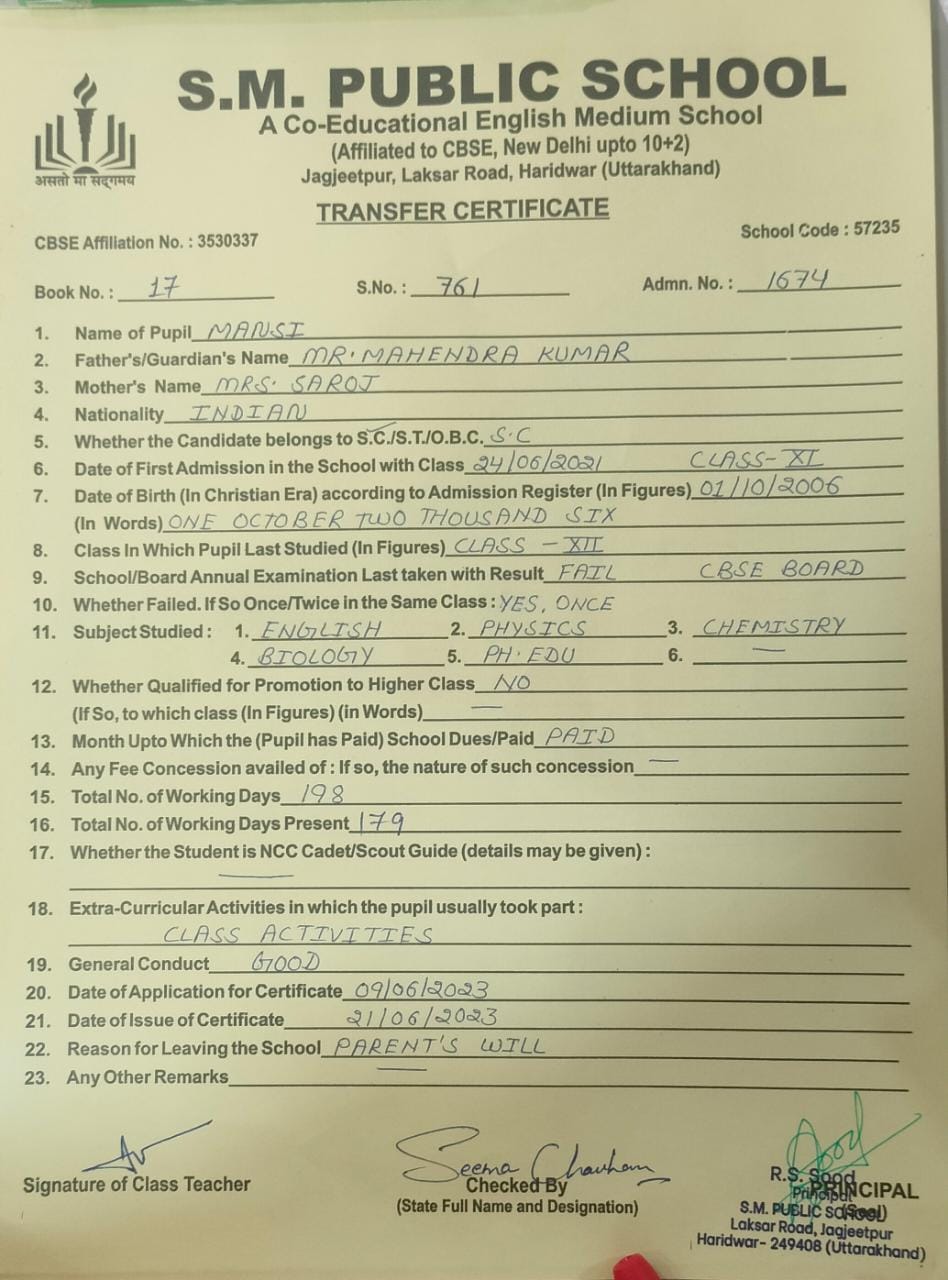 S.M. PUBLIC SCHOOL
A Co-Educational English Medium School
(Affiliated to CBSE, New Delhi upto 10+2)
Jagjeetpur, Laksar Road, Haridwar (Uttarakhand)
असतो मा सद्गमय
TRANSFER CERTIFICATE
CBSE Affiliation No. : 3530337 School Code : 57235
Book No. : 17 S.No. : 761 Admn. No. : 1674
1. Name of Pupil MANSI
2. Father's/Guardian's Name MR. MAHENDRA KUMAR
3. Mother's Name MRS. SAROJ
4. Nationality INDIAN
5. Whether the Candidate belongs to S.C./S.T./O.B.C. S.C
6. Date of First Admission in the School with Class 24/06/2021 CLASS-XI
7. Date of Birth (In Christian Era) according to Admission Register (In Figures) 01/10/2006
(In Words) ONE OCTOBER TWO THOUSAND SIX
8. Class In Which Pupil Last Studied (In Figures) CLASS - XII
9. School/Board Annual Examination Last taken with Result FAIL CBSE BOARD
10. Whether Failed. If So Once/Twice in the Same Class : YES, ONCE
11. Subject Studied : 1. ENGLISH 2. PHYSICS 3. CHEMISTRY
4. BIOLOGY 5. PH. EDU 6. —
12. Whether Qualified for Promotion to Higher Class NO
(If So, to which class (In Figures) (in Words) —
13. Month Upto Which the (Pupil has Paid) School Dues/Paid PAID
14. Any Fee Concession availed of : If so, the nature of such concession —
15. Total No. of Working Days 198
16. Total No. of Working Days Present 179
17. Whether the Student is NCC Cadet/Scout Guide (details may be given) :
—
18. Extra-Curricular Activities in which the pupil usually took part :
CLASS ACTIVITIES
19. General Conduct GOOD
20. Date of Application for Certificate 09/06/2023
21. Date of Issue of Certificate 21/06/2023
22. Reason for Leaving the School PARENT'S WILL
23. Any Other Remarks —
Seema Chauhan
Signature of Class Teacher Checked By PRINCIPAL
(State Full Name and Designation) (Seal)
R.S. Sood
Principal
S.M. PUBLIC SCHOOL
Laksar Road, Jagjeetpur
Haridwar- 249408 (Uttarakhand)